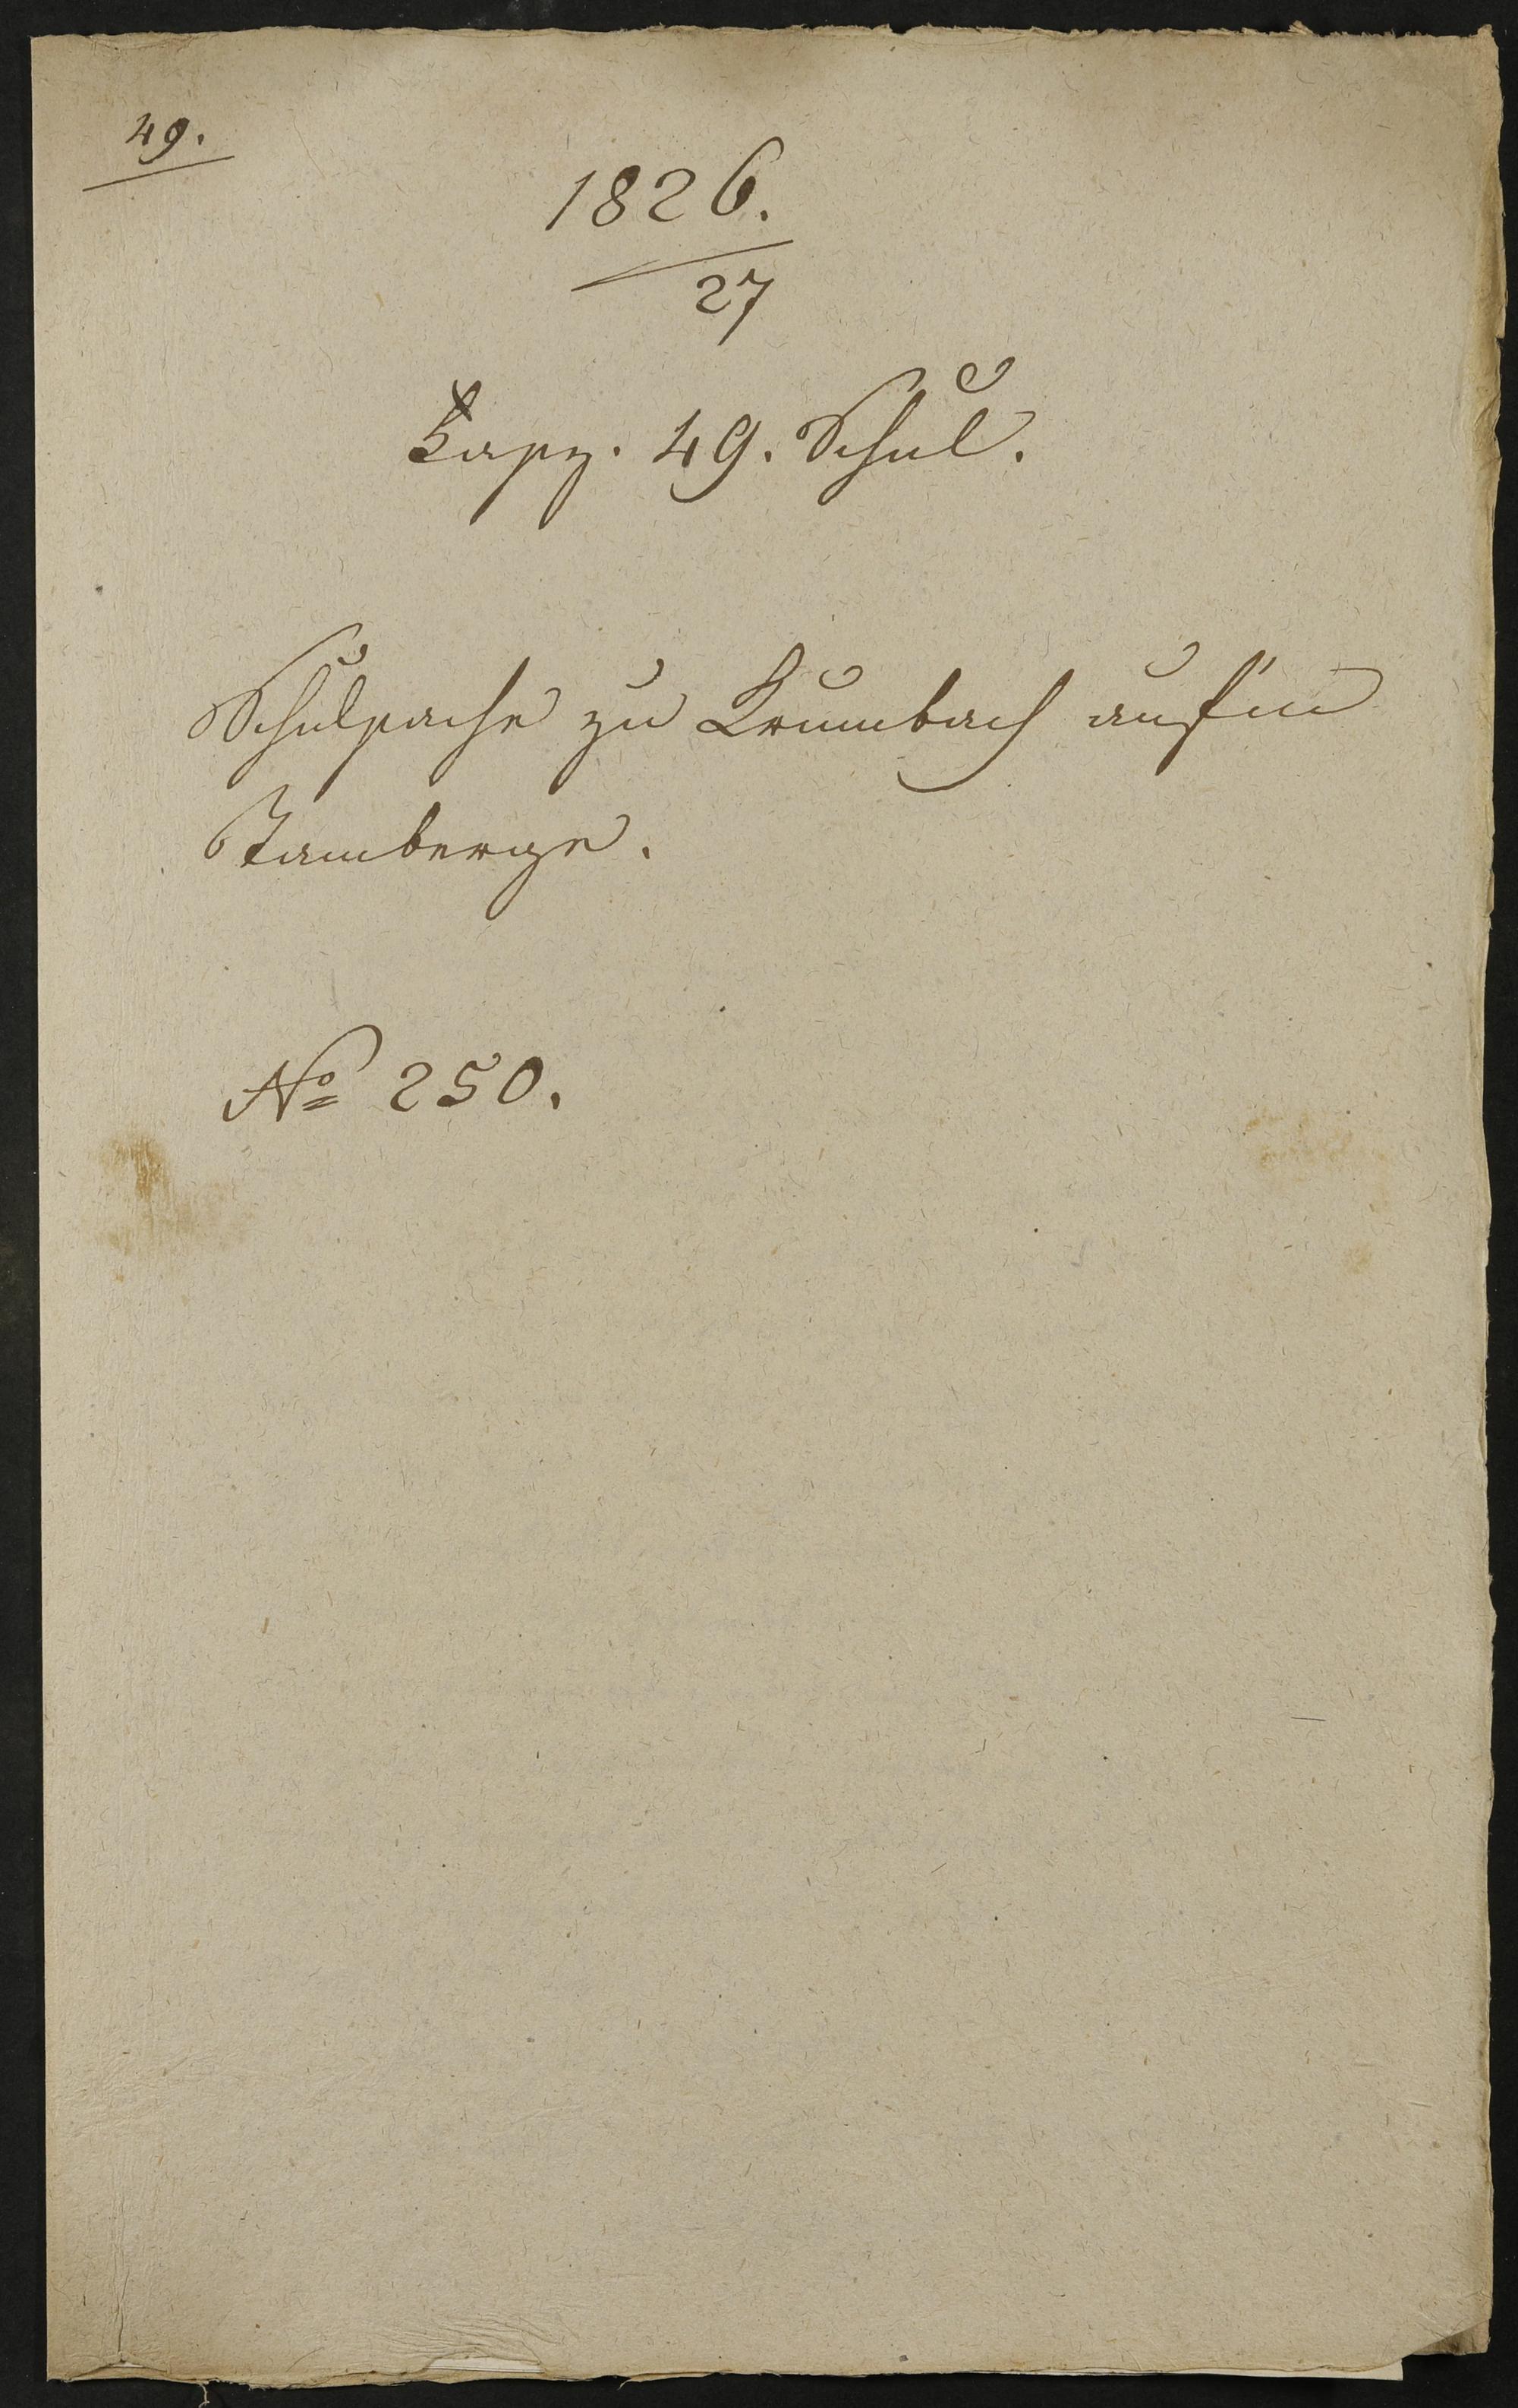 49.
1826.
27
Fasz. 49. Schul.
Schulsache zu Krumbach auf'm
Tannberge.
No 250.